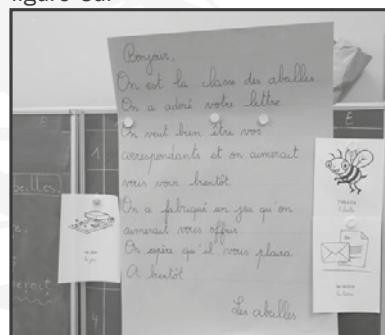 figure 8a.
Bonjour,
On est la classe des abeilles.
On a adoré votre lettre.
On veut bien être vos
correspondants et on aimerait
vous voir bientôt.
On a fabriqué un jeu qu'on
aimerait vous offrir.
On espère qu'il vous plaira.
A bientôt
Les abeilles
E
E
1
4